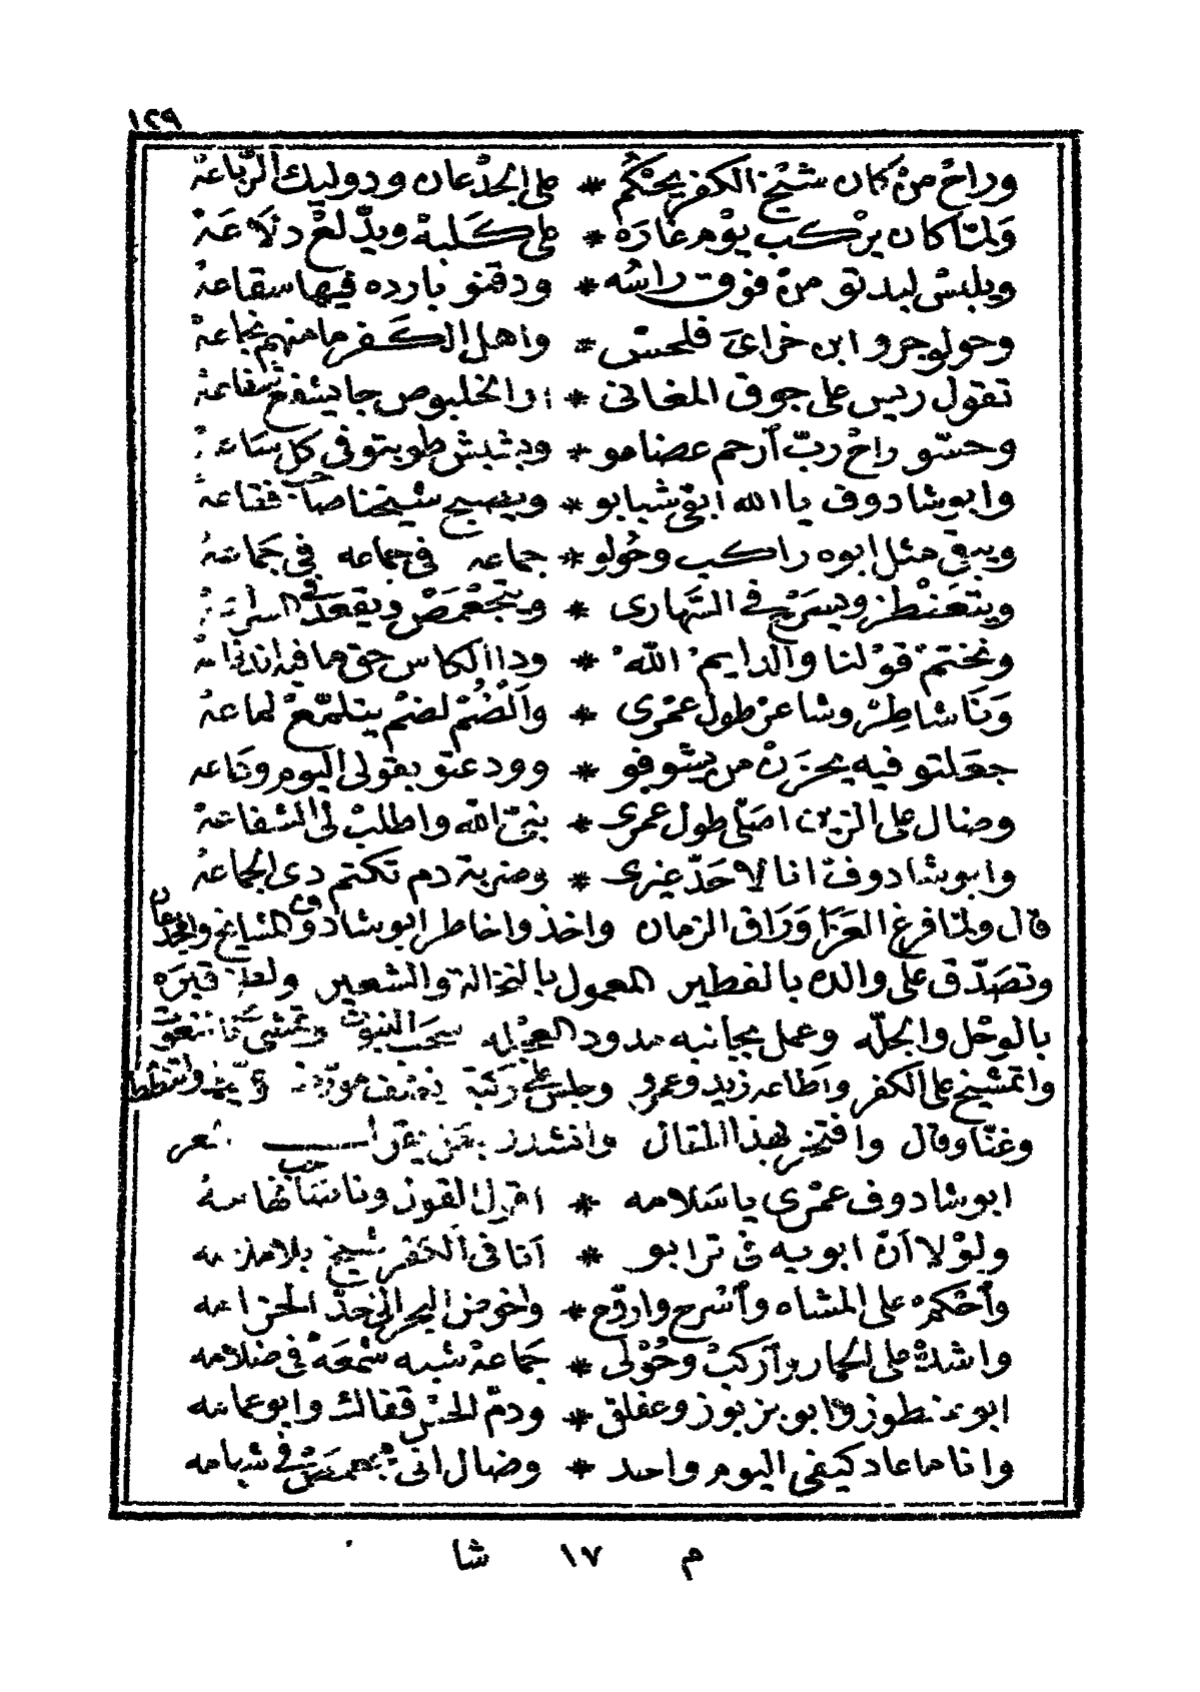 ١٢٩
وراحْ منْ كان شيْخ الكفر يحْكُم * على الجدْعان ودوليك الربّاعهْ
وَلمّا كان يرْكب يوْم غارَهْ * على كَلبهْ ويدّلعْ دلاعَهْ
ويلبسْ لبدتو منْ فوق راسُه * ودقنو بارده فيها سقاعهْ
وحولو جرو ابن خراىَ فلحسْ * واهل الكَفر ما منهم نجاعهْ
تقول ريس على جوق المغانى * والخلبوص جا يشفع شفاعهْ
وحسّو راحْ ربّ ارحم عضامو * وبشبش طوبتو فى كل ساعهْ
وابو شادوف يا الله ابقى شبابو * ويصبح شيخنا صاحب فقاعهْ
ويبقى مثل ابوه راكب وحُولو * جماعه فى جماعه فى جَماعهْ
ويتعَنْطز ويسَرْح فى النّهارى * ويتْجَعْمَصْ ويقعَدْ فى
ونختمْ قوْلنا والدايمْ اللّه * ودا الكاس حق ما فيه
وَنَا شاطرْ وشاعرْ طول عمْرى * والْضُمْ لضمْ يتلمّعْ لماعهْ
جعَلتو فيه يحزنْ من يشوفو * وودعتو بقولى اليوم وداعه
وضال على الزين اصلّى طول عمرى * نبىّ اللّه واطلبْ لى الشفاعهْ
وابو شادوفْ انا لا حَدّ غيرى * وضربة دم تكتم دى الجماعهْ
قال ولمّا فرغ العَزَا وَرَاق الزمان واخذوا خاطر ابو شادوف المشايخ والجدعان
وتصَدّق على والده بالفطير المعمول بالنخالة والشعير ولطخ قبرَه
بالوحْل والجلّه وعمل بجانبه مدود العجْله سحَب النبوت وتمشى
واتمشيخ على الكفر واطاعه زيد وعمرو وجلس على ركبة
وغنّا وقال وافتخر بهذا المقال وانشد شعر
ابو شادوف عمْرى يا سَلامه * اقول القول ونا صاحب نهامهْ
ولوْلا انّ ابويه فى ترابو * انا فى الكفر شيخ بلا ملامه
واحْكمْ على المشاه واسْرح واروّح * واخوض البحر الى حدّ الحزامه
واشدّ على الحمار واركبْ وحُوْلى * جَماعهْ شبه شمْعَهْ فى ضلامه
ابو عنطوز وابو بزبوز وعفلق * ودمّ الحس قفالك وابو عمامه
وانا ما عاد كيفى اليوم واحد * وضال انى فى شبامه
م ١٧ شا